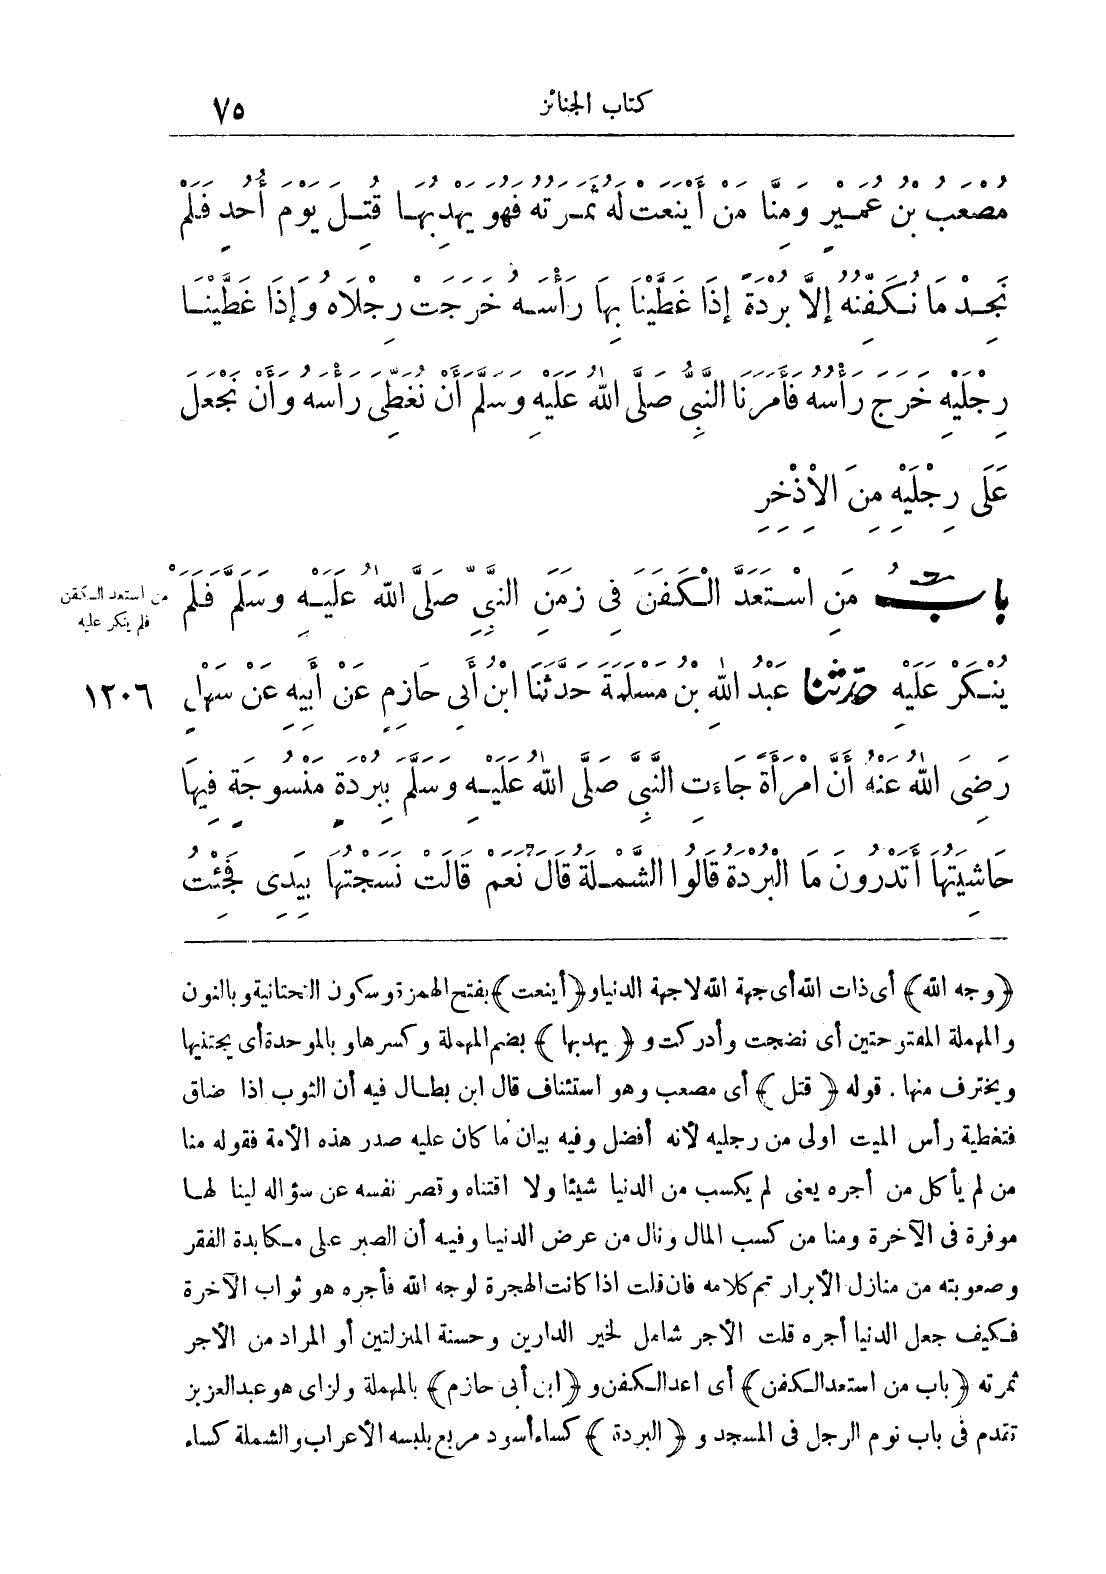 كتاب الجنائز ٧٥
مُصْعَبُ بْنُ عُمَيْرٍ وَمِنَّا مَنْ أَيْنَعَتْ لَهُ ثَمَرَتُهُ فَهُوَ يَهْدِبُهَا قُتِلَ يَوْمَ أُحُدٍ فَلَمْ
نَجِدْ مَا نُكَفِّنُهُ إِلَّا بُرْدَةً إِذَا غَطَّيْنَا بِهَا رَأْسَهُ خَرَجَتْ رِجْلَاهُ وَإِذَا غَطَّيْنَا
رِجْلَيْهِ خَرَجَ رَأْسُهُ فَأَمَرَنَا النَّبِىُّ صَلَّى اللهُ عَلَيْهِ وَسَلَّمَ أَنْ نُغَطِّىَ رَأْسَهُ وَأَنْ نَجْعَلَ
عَلَى رِجْلَيْهِ مِنَ الْإِذْخِرِ
بابُ مَنِ اسْتَعَدَّ الْكَفَنَ فِى زَمَنِ النَّبِىِّ صَلَّى اللهُ عَلَيْهِ وَسَلَّمَ فَلَمْ
من استعد الكفن
فلم ينكر عليه
يُنْكَرْ عَلَيْهِ حدثنا عَبْدُ اللهِ بْنُ مَسْلَمَةَ حَدَّثَنَا ابْنُ أَبِى حَازِمٍ عَنْ أَبِيهِ عَنْ سَهْلٍ ١٢٠٦
رَضِىَ اللهُ عَنْهُ أَنَّ امْرَأَةً جَاءَتِ النَّبِىَّ صَلَّى اللهُ عَلَيْهِ وَسَلَّمَ بِبُرْدَةٍ مَنْسُوجَةٍ فِيهَا
حَاشِيَتُهَا أَتَدْرُونَ مَا الْبُرْدَةُ قَالُوا الشَّمْلَةُ قَالَ نَعَمْ قَالَتْ نَسَجْتُهَا بِيَدِى فَجِئْتُ
﴿وجه الله﴾ أى ذات الله أى جهة الله لا جهة الدنيا و﴿أينعت﴾ بفتح الهمزة وسكون التحتانية وبالنون
والمهملة المفتوحتين أى نضجت وأدركت و﴿يهدبها﴾ بضم المهملة وكسرها وبالموحدة أى يجتنيها
ويخترف منها . قوله ﴿قتل﴾ أى مصعب وهو استئناف قال ابن بطال فيه أن الثوب اذا ضاق
فتغطية رأس الميت اولى من رجليه لأنه أفضل وفيه بيان ما كان عليه صدر هذه الأمة فقوله منا
من لم يأكل من أجره يعنى لم يكسب من الدنيا شيئا ولا اقتناه وقصر نفسه عن سؤاله لينا لها
موفرة فى الآخرة ومنا من كسب المال ونال من عرض الدنيا وفيه أن الصبر على مكابدة الفقر
وصعوبته من منازل الأبرار تم كلامه فان قلت اذا كانت الهجرة لوجه الله فأجره هو ثواب الآخرة
فكيف جعل الدنيا أجره قلت الأجر شامل لخير الدارين وحسنة المنزلتين أو المراد من الأجر
ثمرته ﴿باب من استعد الكفن﴾ أى اعد الكفن و﴿ابن أبى حازم﴾ بالمهملة ولزاى هو عبد العزيز
تقدم فى باب نوم الرجل فى المسجد و﴿البردة﴾ كساء أسود مربع يلبسه الأعراب والشملة كساء